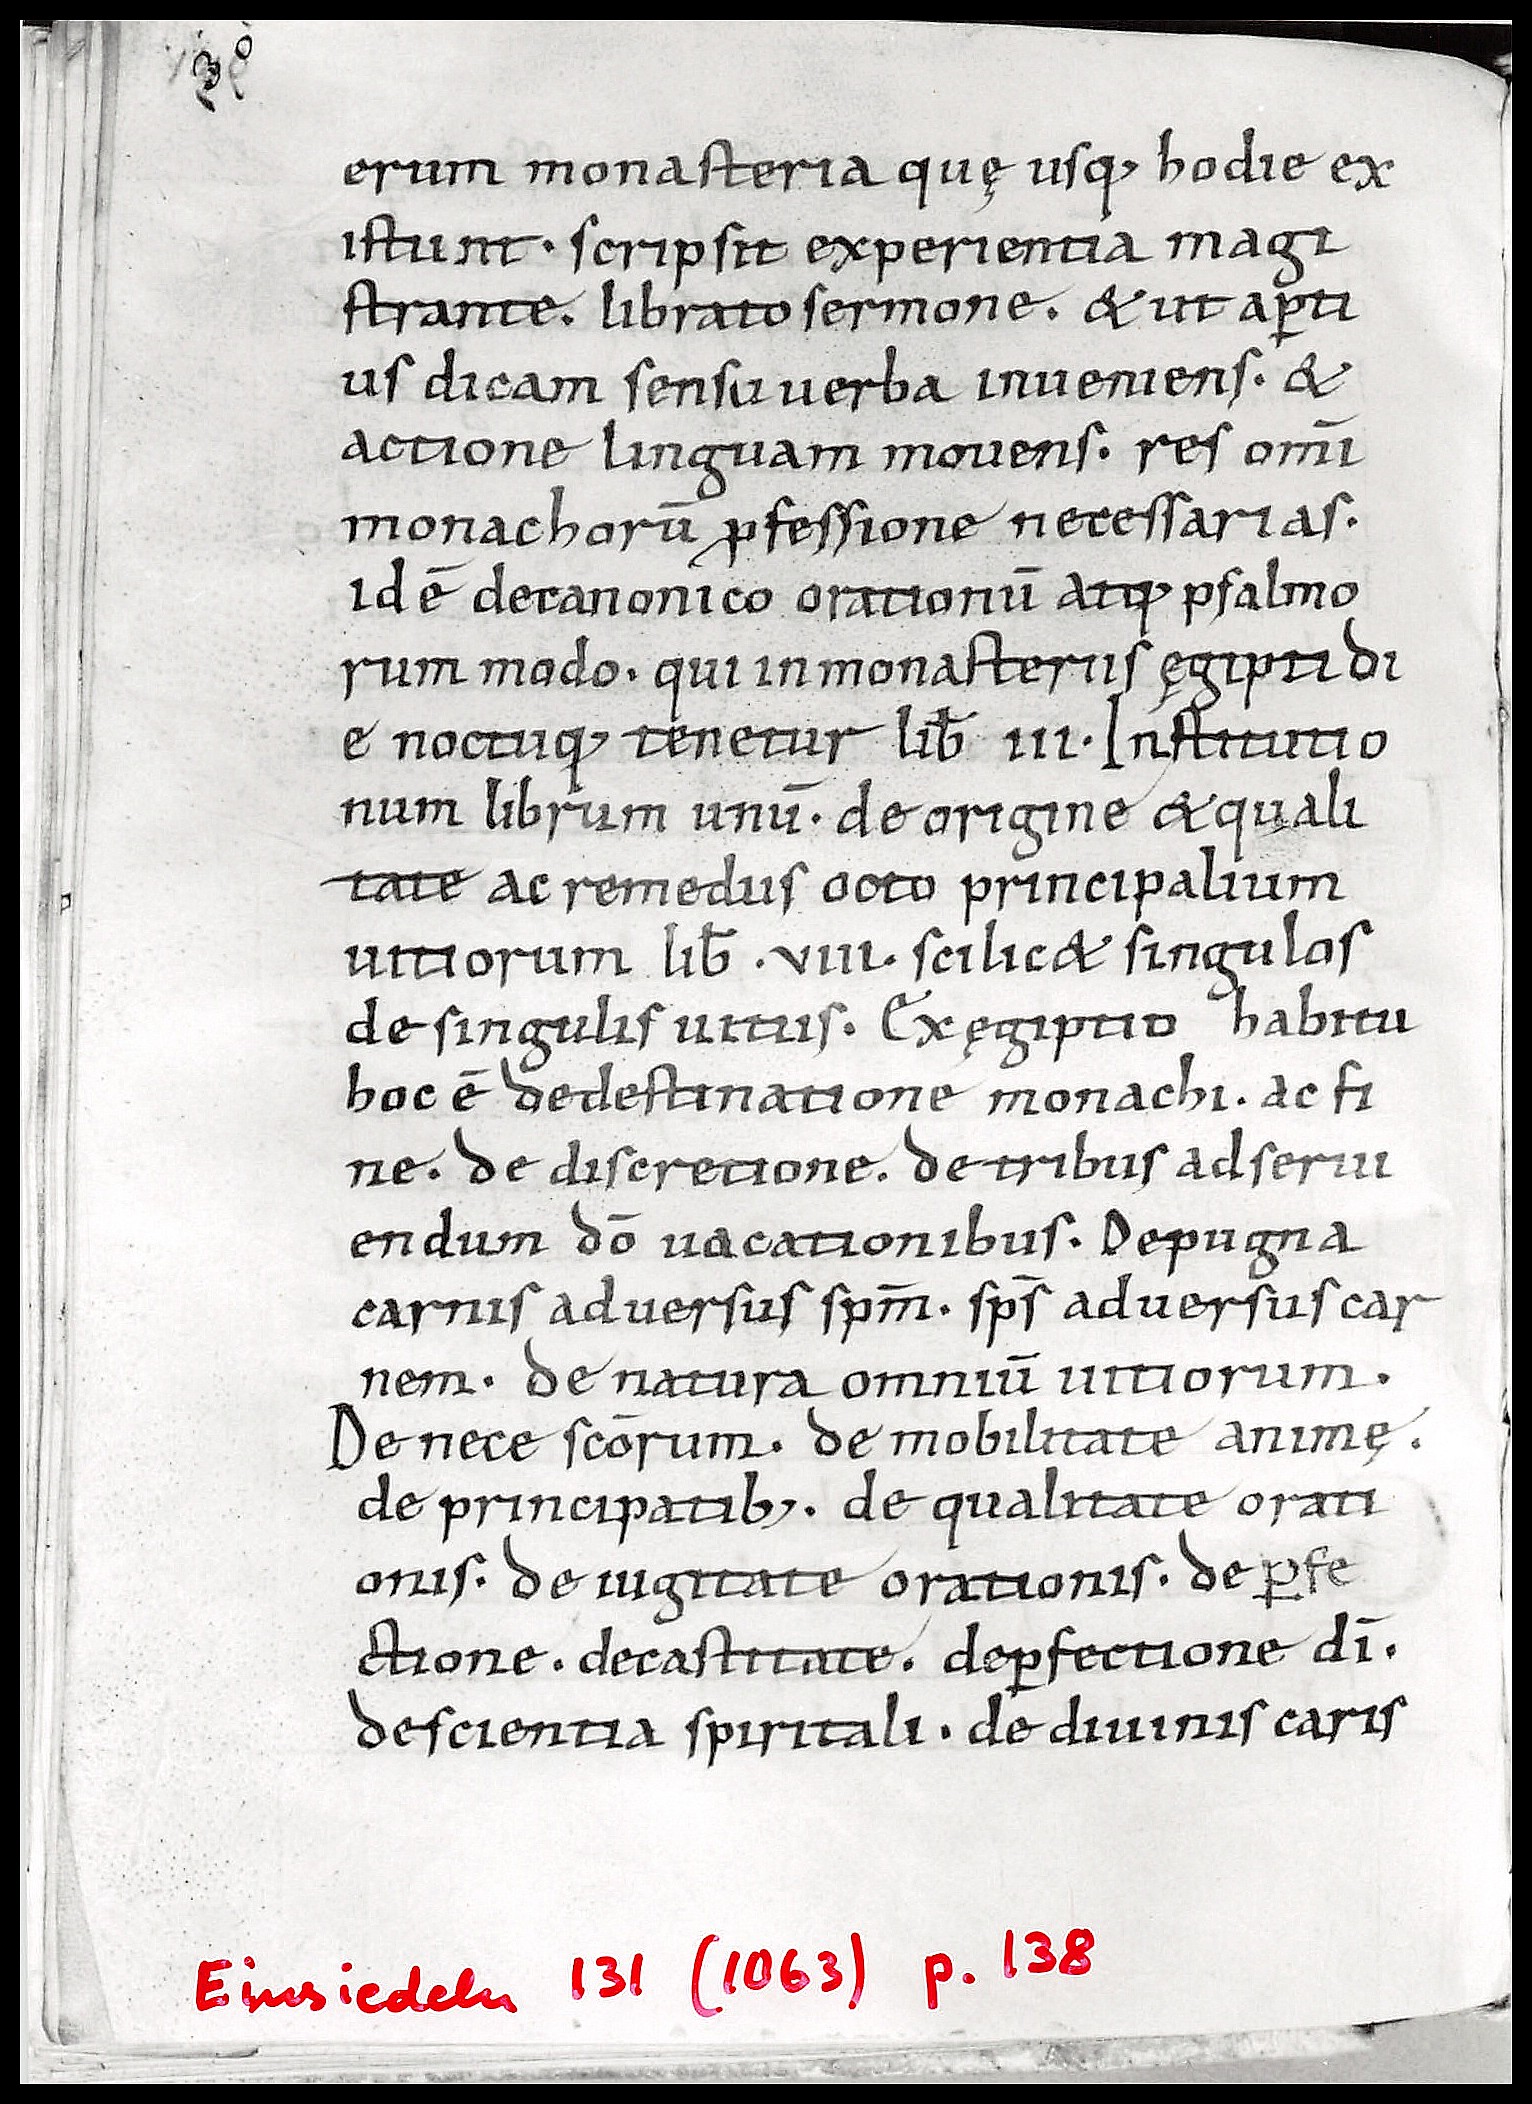 erum monasteria quę usq, hodie ex
istunt. scripsit experientia magi
strante. librato sermone. & ut aꝑti
us dicam sensu uerba inueniens. &
actione linguam mouens. res om̄i
monachorū ꝓfessione necessarias.
idē decanonico orationū atq, psalmo
rum modo. qui in monasteriis ęgipti di
e noctuq, tenetur lib̄ iii. Institutio
num librum unū. de origine & quali
tate ac remediis octo principalium
uitiorum lib̄ .viii. scilic& singulos
de singulis uitiis. Ex ęgiptio habitu
hoc ē dedestinatione monachi. ac fi
ne. de discretione. de tribus ad serui
endum dō uacationibus. De pugna
carnis aduersus spm̄. sps̄ aduersus car
nem. de natura omniū uitiorum.
De nece scōrum. de mobilitate animę.
de principatib,. de qualitate orati
onis. de iugitate orationis. de ꝑfe
ctione. decastitate. deꝑfectione dī.
descientia spiritali. de diuinis caris
Einsiedeln 131 (1063) p. 138